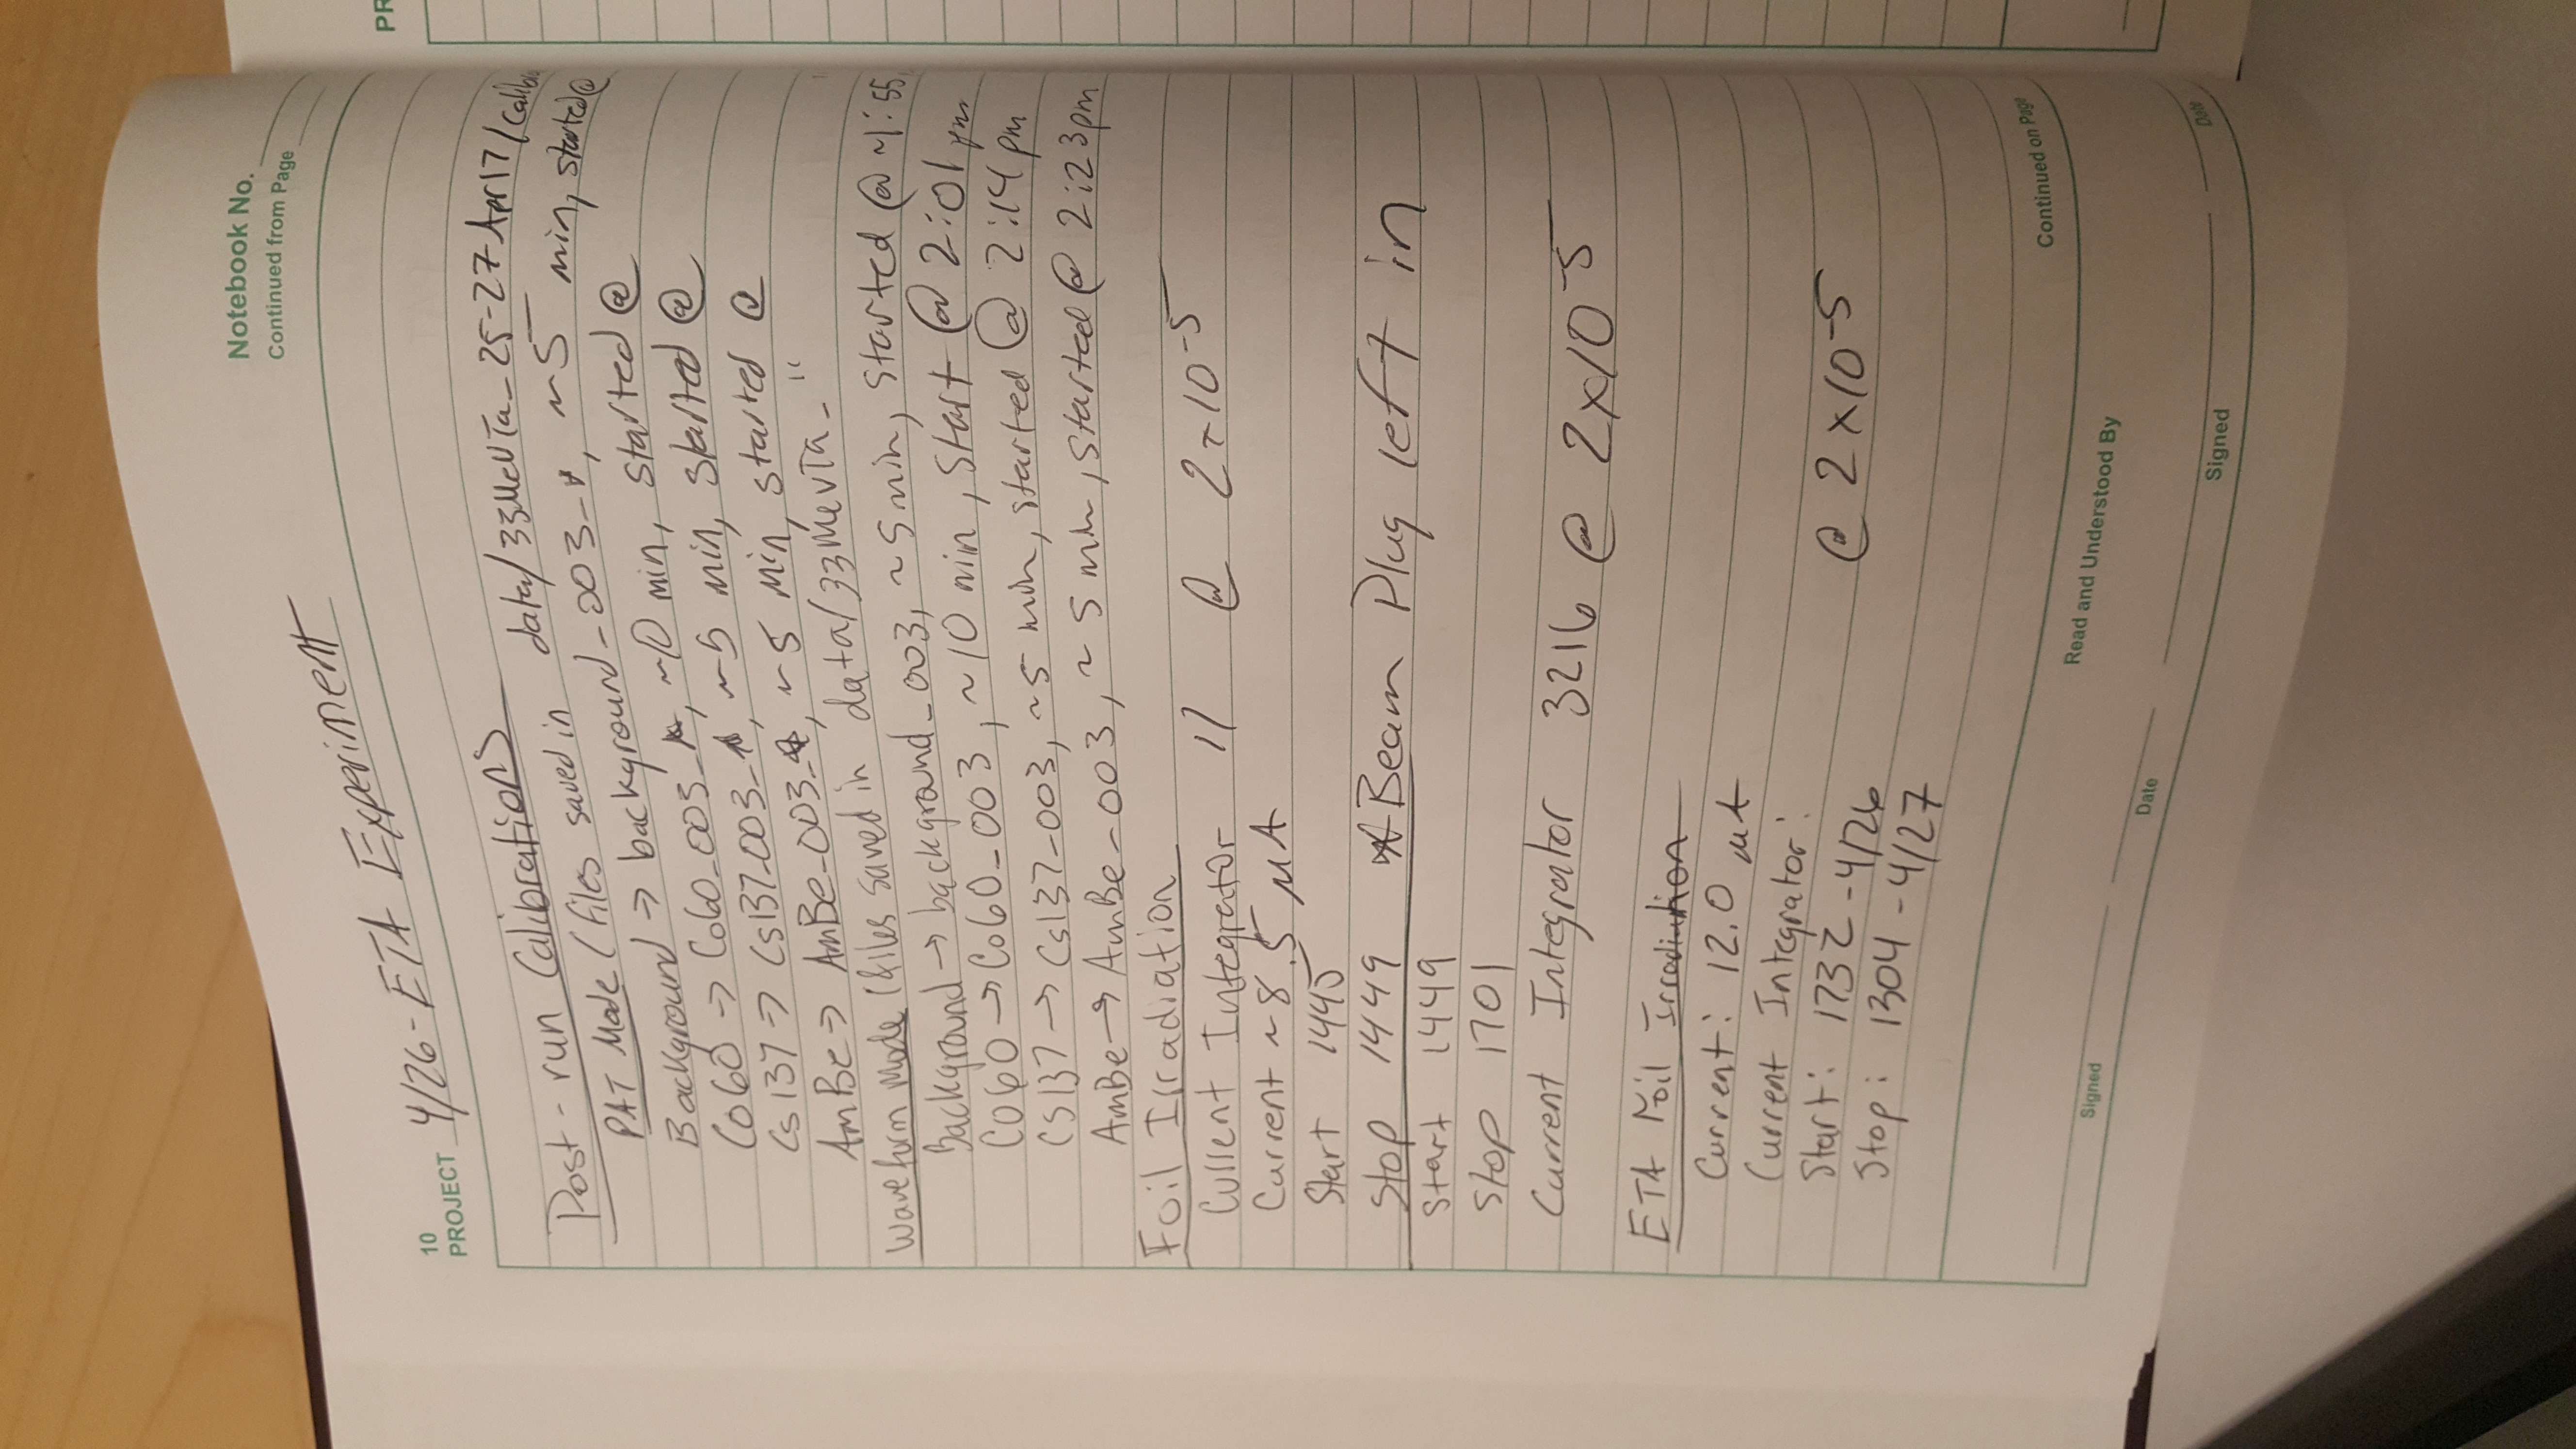 Notebook No.
10
PROJECT 4/26 - ETA Experiment
Continued from Page
Post-run Calibrations data/33MeVTa_25-27Apr17/calib
PAT Mode (files saved in
Background => background_003_*, ~5 min, started @
Co60 => Co60_003_*, ~10 min, started @
Cs137 => Cs137_003_*, ~5 min, started @
AmBe => AmBe_003_*, ~5 min, started @
Waveform Mode (files saved in data/33MeVTa_ "
Background → background_003, ~5min, started @ ~1:55
Co60 → Co60_003, ~10 min, start @ 2:01 pm
Cs137 → Cs137_003, ~5 min, started @ 2:14 pm
AmBe → AmBe_003, ~5 min, started @ 2:23 pm
Foil Irradiation
Current Integrator 11 @ 2×10-5
Current ~8.5 µA
Start 1445
Stop 1449 *Beam Plug left in
Start 1449
Stop 1701
Current Integrator 3216 @ 2×10-5
ETA Foil Irradiation
Current: 12.0 µA
Current Integrator: @ 2×10-5
Start: 1732 - 4/26
Stop: 1304 - 4/27
Continued on Page
Read and Understood By
Signed
Date
Signed
Date
PR